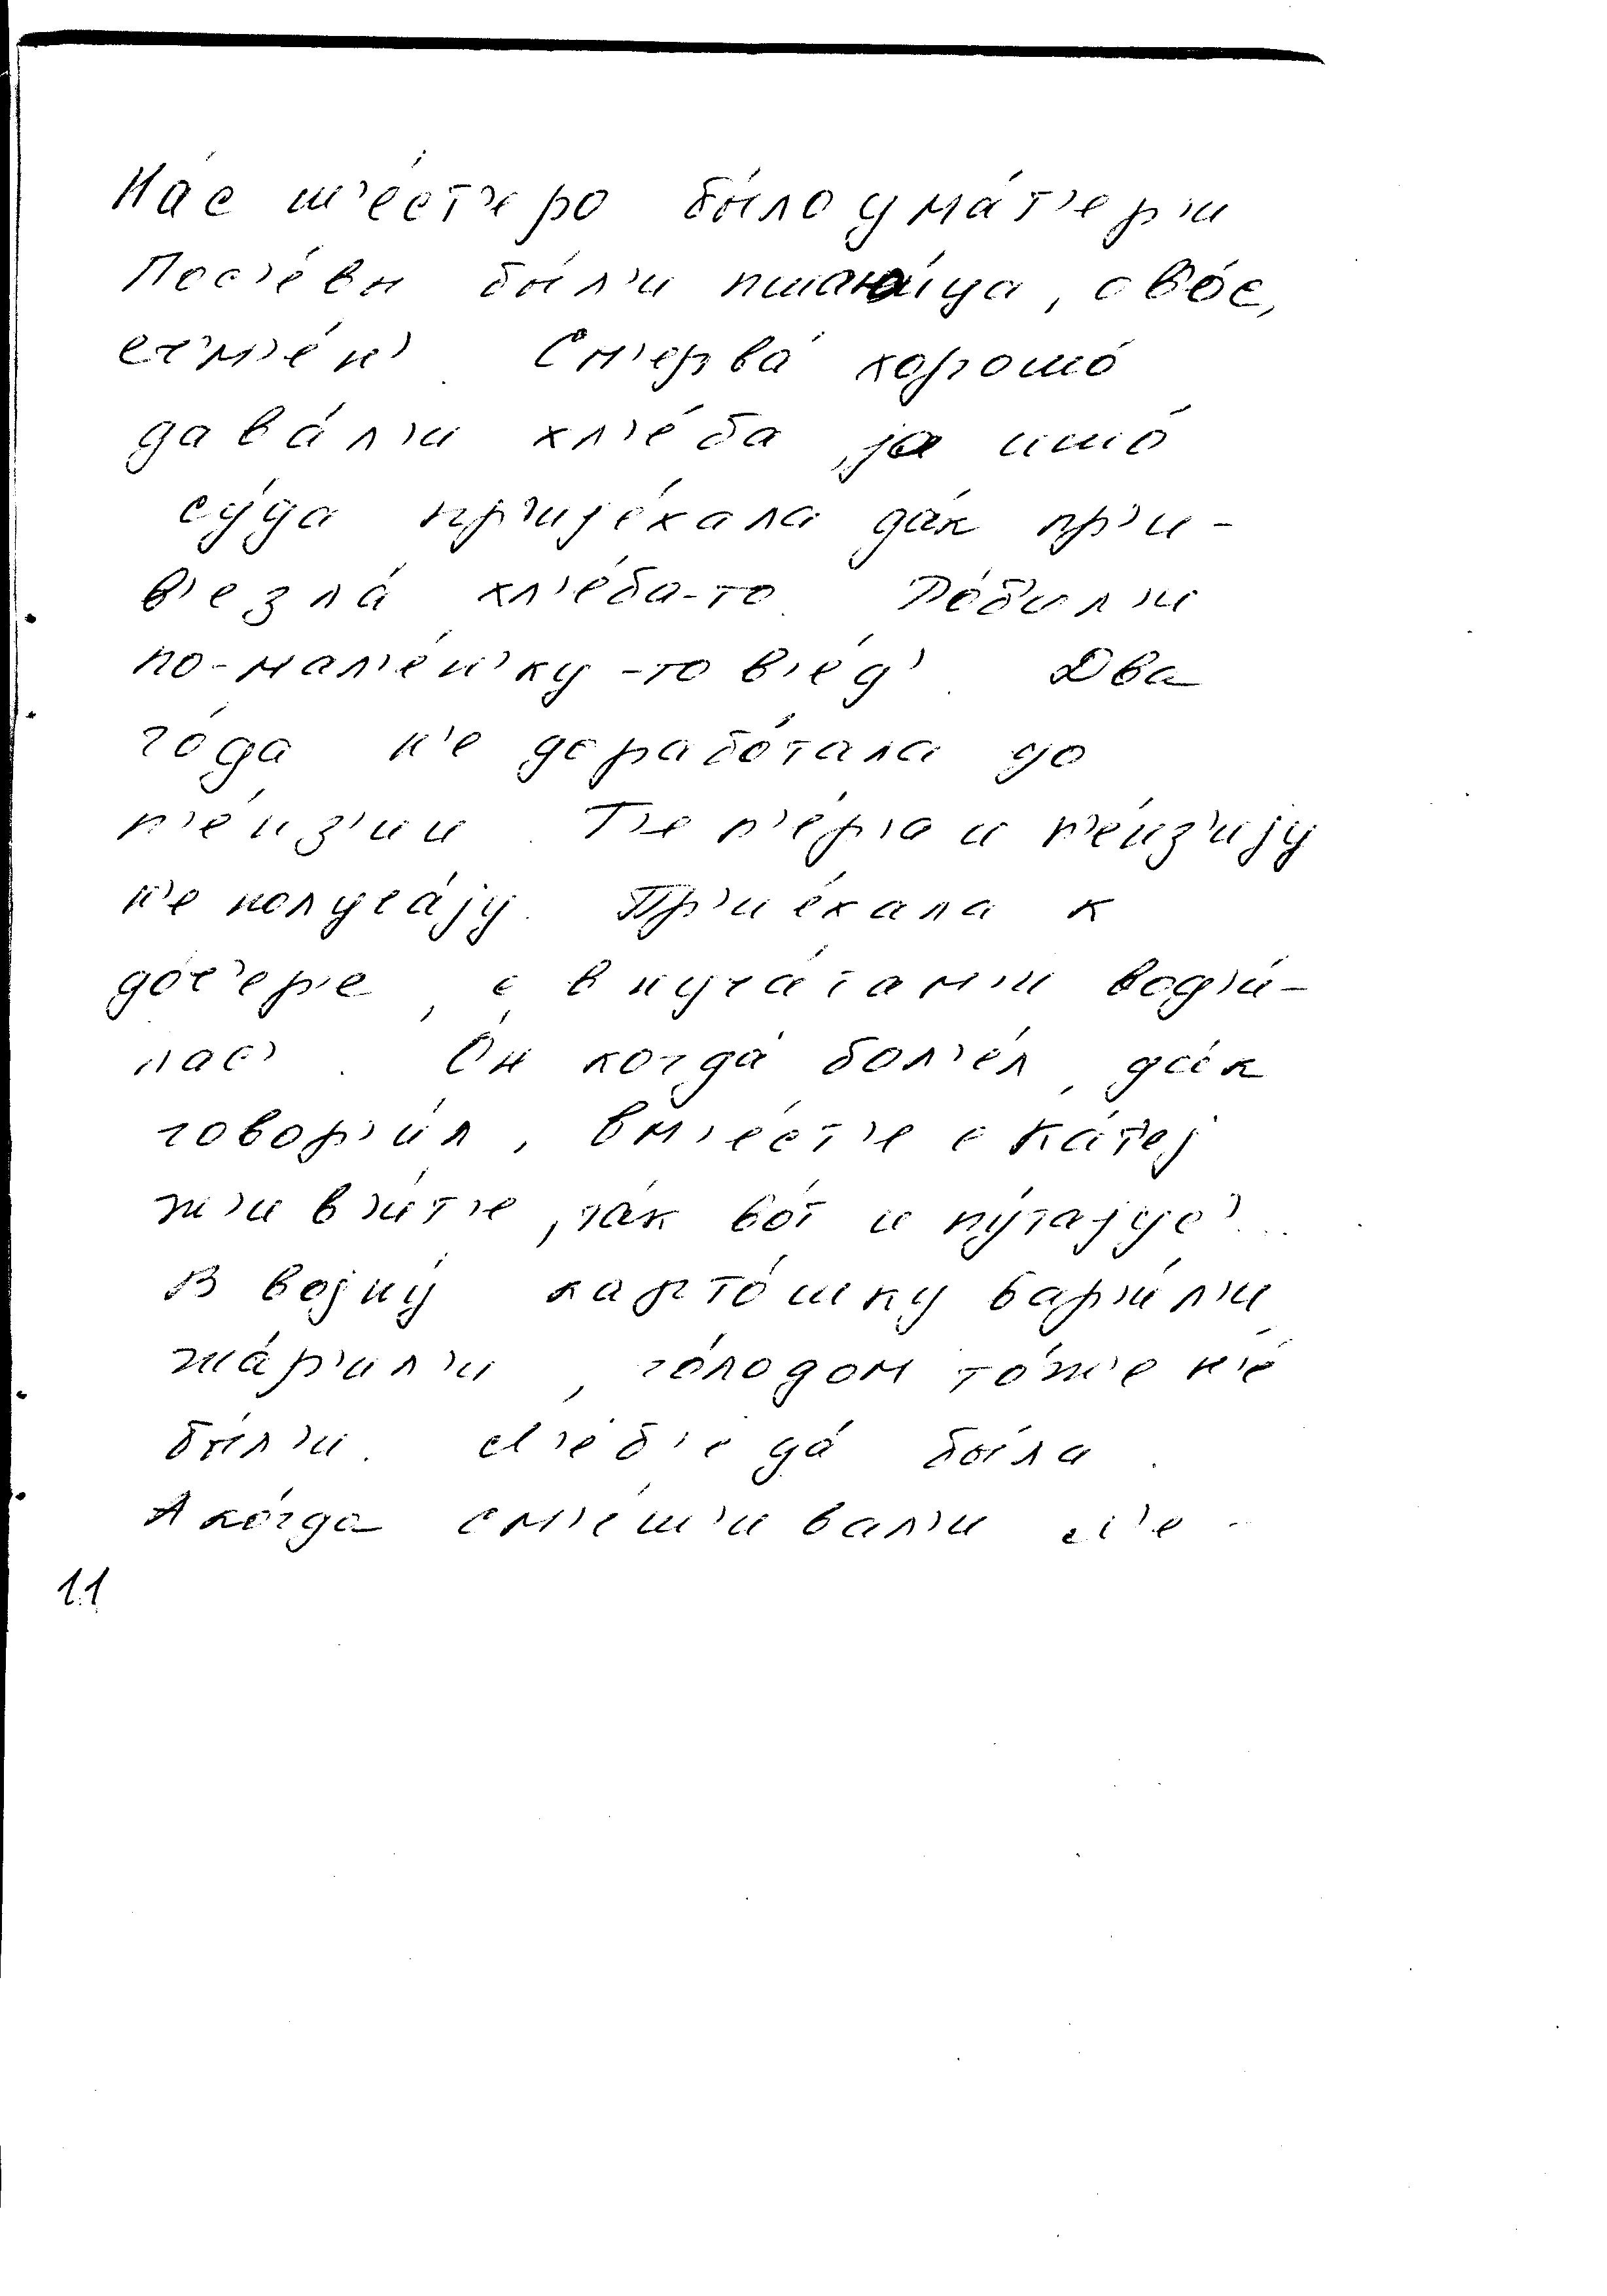 На́с ш'е́ст'еро бы́ло у ма́т'ер'и
Пос'е́вы бы́л'и пшани́ца, ово́с,
еч'м'е́н'. Сп'ерва́ хорошо́
дава́л'и хл'е́ба, ја ишо́
су́да пр'ије́хала да́к пр'и-
в'езла́ хл'е́ба-то. Ро́бил'и
по-мал'е́н'ку-то в'е́д'. Два
го́да н'е дорабо́тала до
п'е́нз'ии. Т'еп'е́р'а и п'е́нз'ију
н'е получа́ју. Пр'ие́хала к
до́ч'ер'е, с внуча́там'и вод'и́-
лас'. О́н когда́ бол'е́л, да́к
говор'и́л, вм'е́ст'е с Ка́т'еј
жив'и́т'е, та́к во́т и пу́тајус'...
В војну́ карто́шку вар'и́л'и,
жа́р'ил'и, го́лодом то́ж'е н'е́
были. Л'е́б'еда́ бы́ла.
А ко́гда см'е́ш'ивал'и л'е-
11